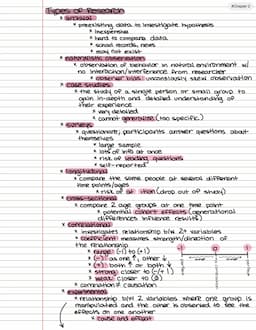 #Chapter 2
Types of Research
* archival
* preexisting data to investigate hypothesis
* inexpensive
* hard to compare data
* school records, news
* may not exist
* naturalistic observation
* observation of behavior in natural environment w/
no interaction/interference from researcher
* observer bias: unconsciously skew observation
* case studies
* the study of a single person or small group to
gain in-depth and detailed understanding of
their experience
* very detailed
* cannot generalize (too specific)
* surveys
* questionnaire; participants answer questions about
themselves
* large sample
* lots of info at once
* risk of leading questions
* self-reported
* longitudinal
* compare the same people at several different
time points/ages
* risk of attrition (drop out of study)
* cross-sectional
* compare 2 age groups at one time point
* potential cohort effects (generational
differences influence results)
* correlational
* investigates relationship b/w 2+ variables
* coefficient: measures strength/direction of
the relationship
* range: (-1) to (+1)
* (-): as one ↑, other ↓
* (+): both ↑ or both ↓
* strong: closer to (-/+ 1)
* weak: closer to (0)
* correlation ≠ causation
* experimental
* relationship b/w 2 variables where one group is
manipulated and the other is observed to see the
effects on one another
* cause and effect